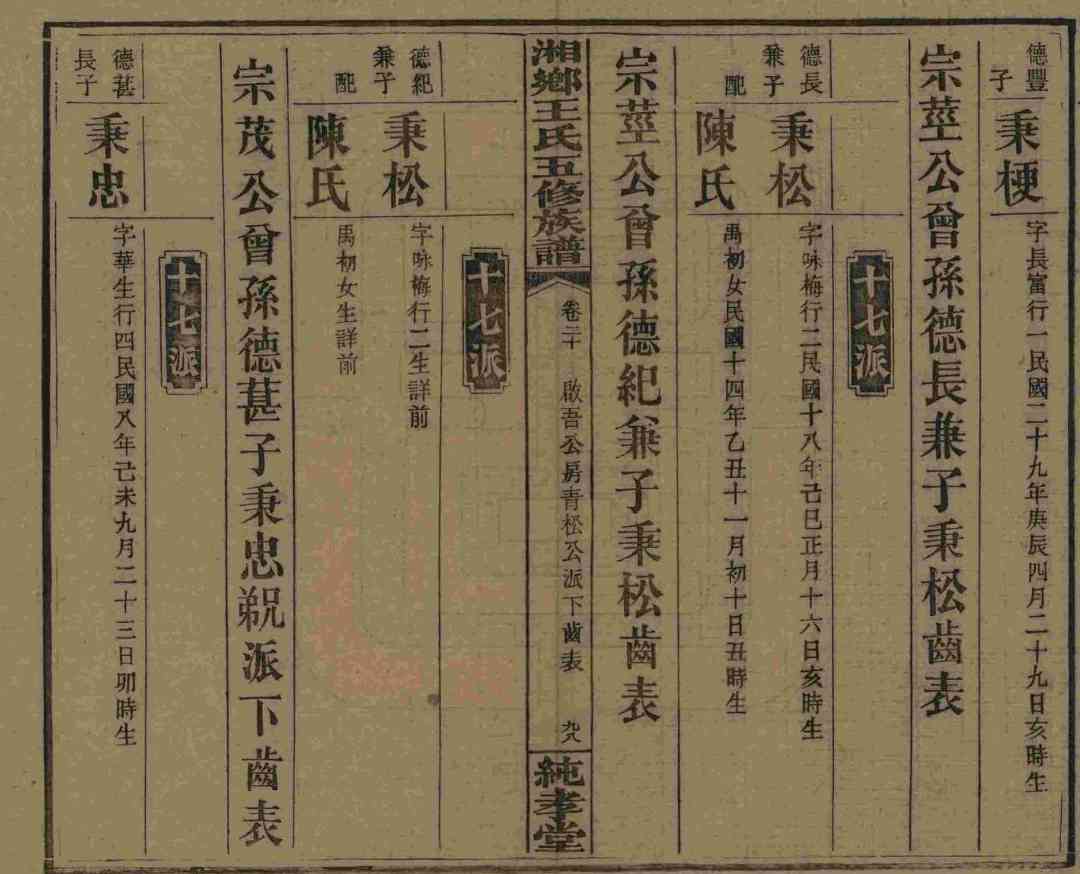 德豐子
秉梗
字長富行一民國二十九年庚辰四月二十九日亥時生
宗莖公曾孫德長兼子秉松齒表
十七派
德長兼子
秉松
字咏梅行二民國十八年己巳正月十六日亥時生
配
陳氏
禹初女民國十四年乙丑十一月初十日丑時生
宗莖公曾孫德紀兼子秉松齒表
湘鄉王氏五修族譜
卷二十
啟吾公房青松公派下齒表
九八
純孝堂
十七派
德紀兼子
秉松
字咏梅行二生詳前
配
陳氏
禹初女生詳前
宗茂公曾孫德葚子秉忠派下齒表
十七派
德葚長子
秉忠
字華生行四民國八年己未九月二十三日卯時生